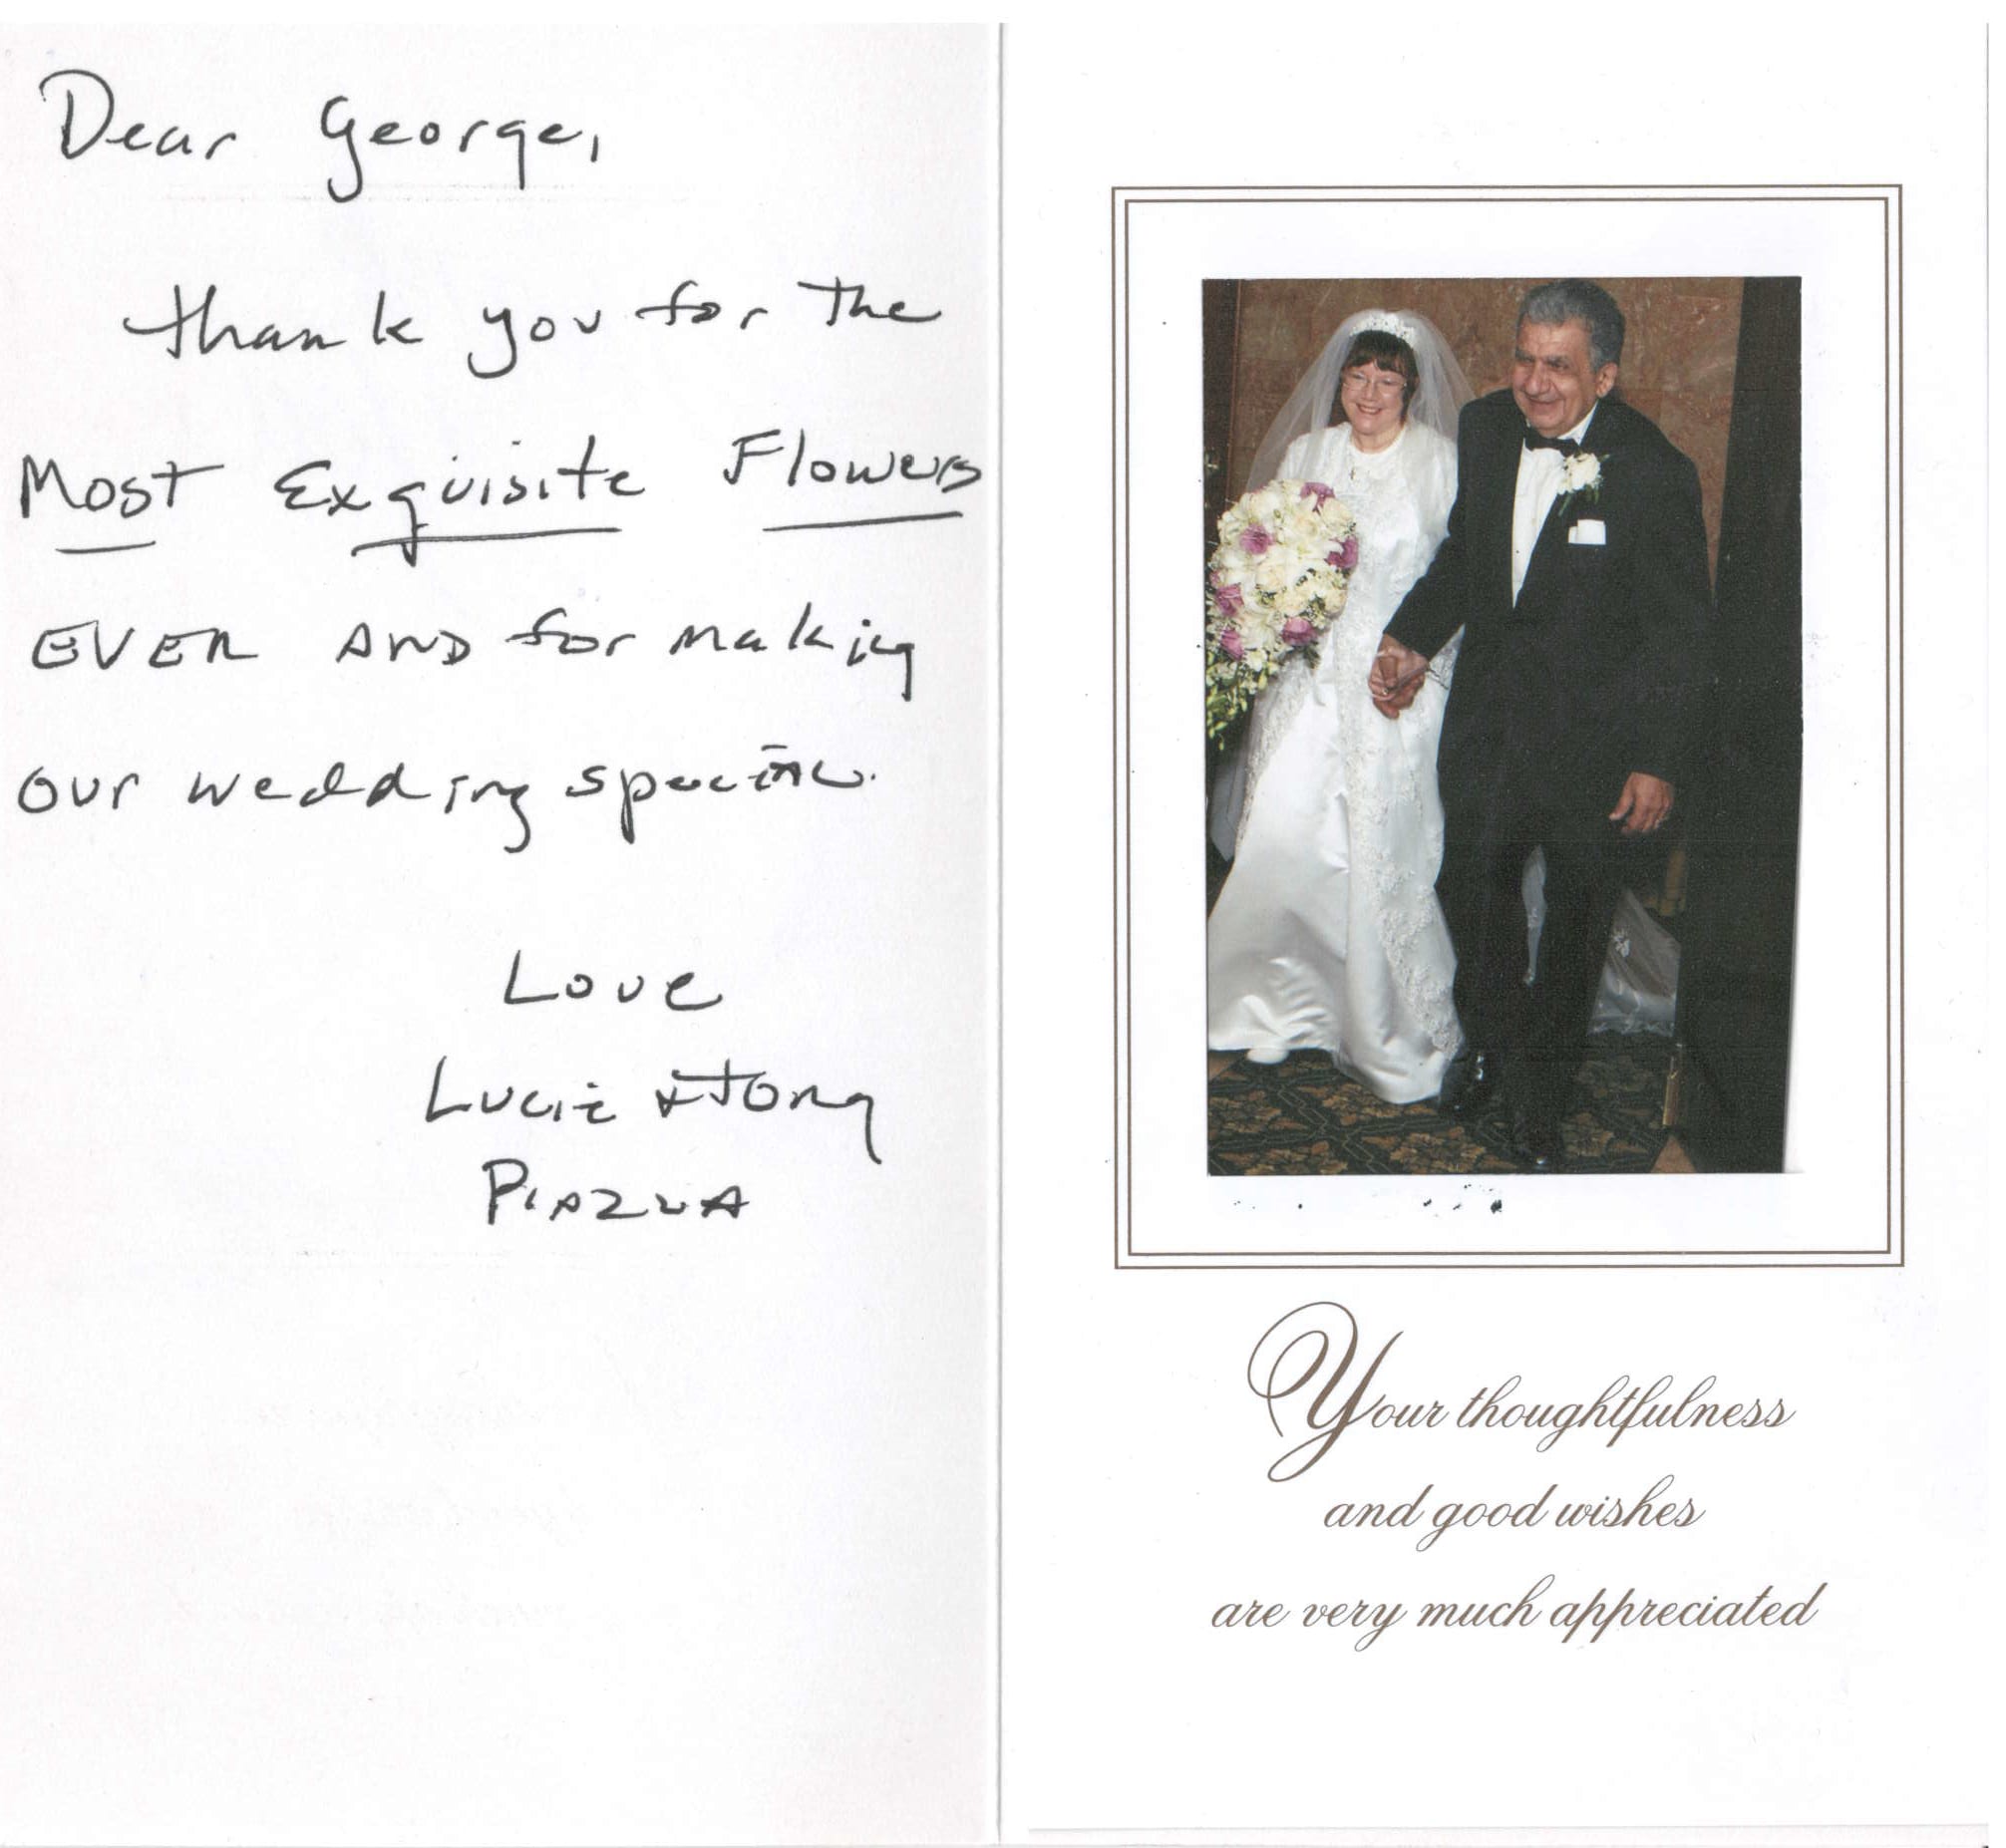 Dear George,
thank you for the
Most Exquisite Flowers
EVER AND for making
our wedding special.
Love
Lucie & Tony
PIAZZA
Your thoughtfulness
and good wishes
are very much appreciated